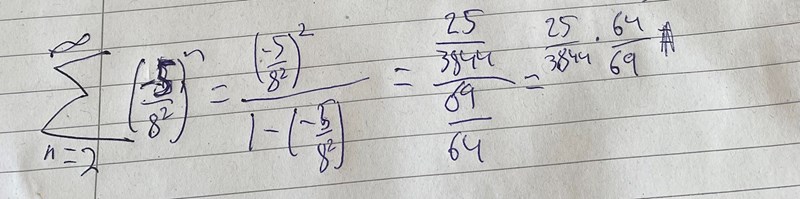 \sum_{n=2}^{\infty} \left(\frac{-5}{8^2}\right)^n = \frac{\left(\frac{-5}{8^2}\right)^2}{1-\left(\frac{-5}{8^2}\right)} = \frac{\frac{25}{3844}}{\frac{69}{64}} = \frac{25}{3844} \cdot \frac{64}{69}